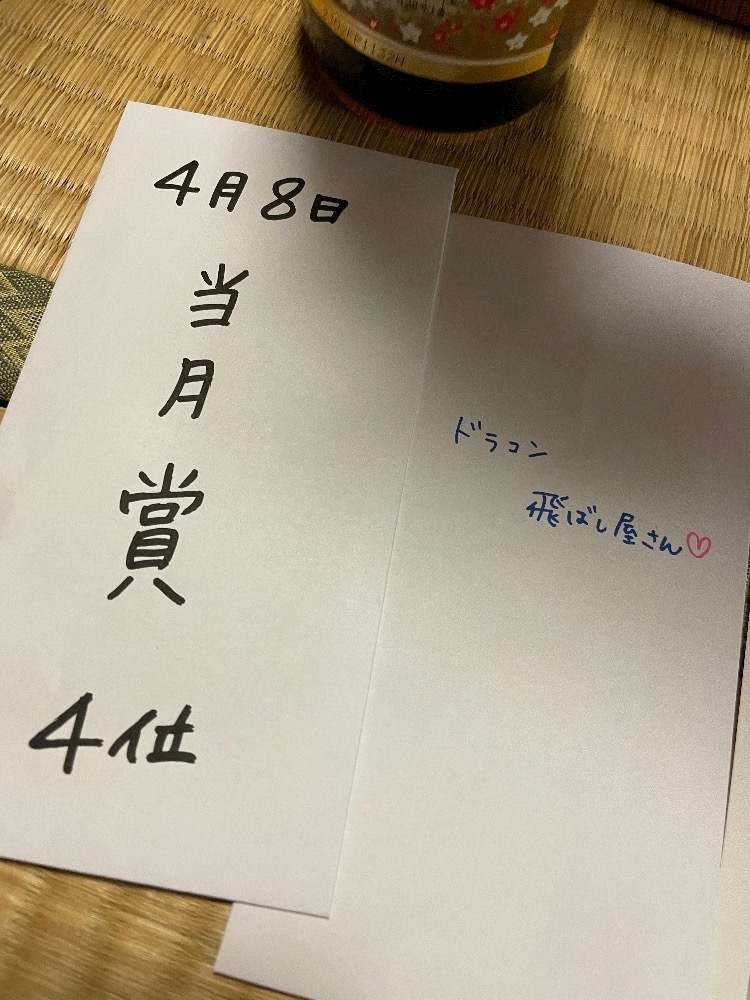 4月8日
当
月
賞
4位
ドラコン
飛ばし屋さん♡